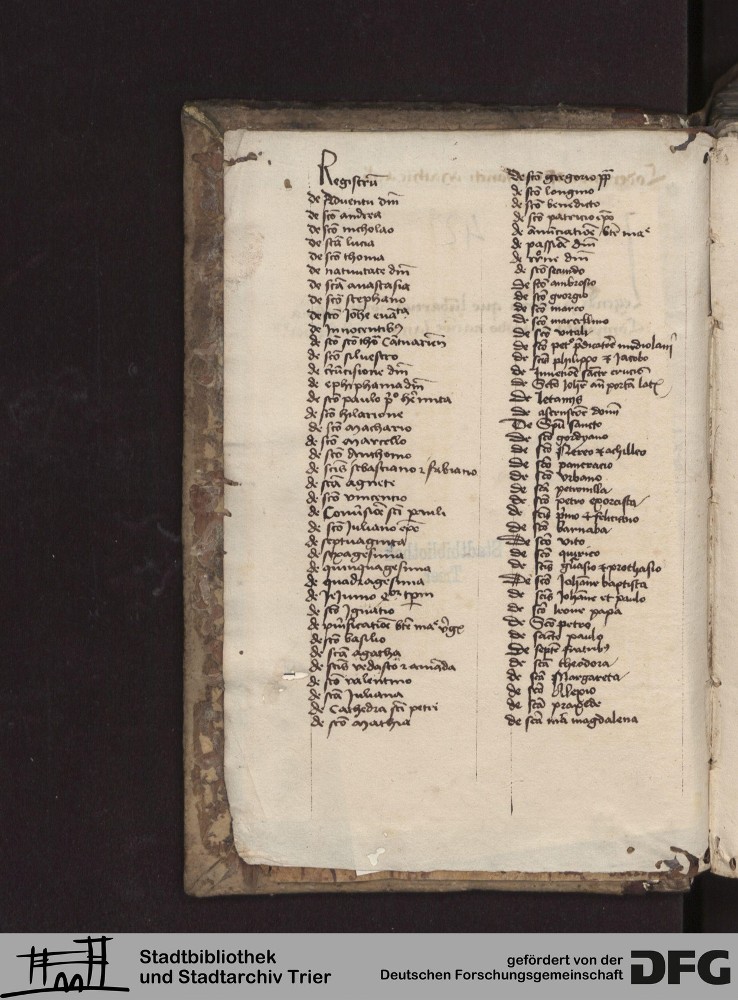 Registrū
de Aduentu dn̄i
de sc̄o andrea
de sc̄o nicholao
de sc̄a lucia
de sc̄o thoma
de natiuitate dn̄i
de sc̄a anastasia
de sc̄o stephano
de sc̄o Joh̄e euāᵗᵃ
de Innocentibꝫ
de sc̄o thō Cātuariēn
de sc̄o siluestro
de cīrcūcisione dn̄i
de ephiphania dn̄i
de sc̄o paulo pͦ her̄mita
de sc̄o hilarione
de sc̄o Machario
de sc̄o Marcello
de sc̄o Anthonio
de sc̄is sebastiano ⁊ fabiano
de sc̄a agnete
de sc̄o vincencio
de Conūsiōe sc̄i pauli
de sc̄o Juliano ep̄o
de septuagesīa
de sexagesima
de quinquagesima
de quadragesima
de Jeiunio qͦr tp̄m
de sc̄o Ignatio
de pūificatiōe bt̄e maᵉ v̄gīs
de sc̄o basilio
de sc̄a agatha
de sc̄is vedasto ⁊ amāda
de sc̄o valentino
de sc̄a Juliana
de Cathedra sc̄i petri
de sc̄o Mathia
de sc̄o gregorio pp
de sc̄o longino
de sc̄o benedicto
de sc̄o patricio ep̄o
de anūciatiōe bt̄e maᵉ
de passiōe dn̄i
de dn̄i
de sc̄o secundo
De sc̄o ambrosio
de sc̄o georgio
de sc̄o marco
de sc̄o marcellino
de sc̄o vitali
de sc̄o petͦ p̄dicatōe mediolani
de sc̄is philippo ⁊ Jacobo
de Inuentiōe sāctē crucis
de Sc̄o Joh̄e an̄ portā latꝭ
De letaniis
de ascensione domī
De Spū sancto
De sc̄o gordyano
de sc̄o Nereo ⁊ achilleo
de sc̄o pancracio
de sc̄o vrbano
De sc̄a petronilla
de sc̄o petro exorcista
de sc̄is p̄mo ⁊ feliciano
de sc̄o barnaba
De sc̄o vito
de sc̄o quirico
de sc̄is gūasio ⁊ prothasio
De sc̄o Joh̄ane baptista
de sc̄is Joh̄ane et paulo
de sc̄o leone papa
de Sc̄o petro
de sācto paulo
De septē fratribꝫ
de sc̄a theodora
de sc̄a Margareta
de sc̄o Alexio
de sc̄a praxede
de sc̄a mā magdalena
Stadtbibliothek
und Stadtarchiv Trier
gefördert von der
Deutschen Forschungsgemeinschaft
DFG